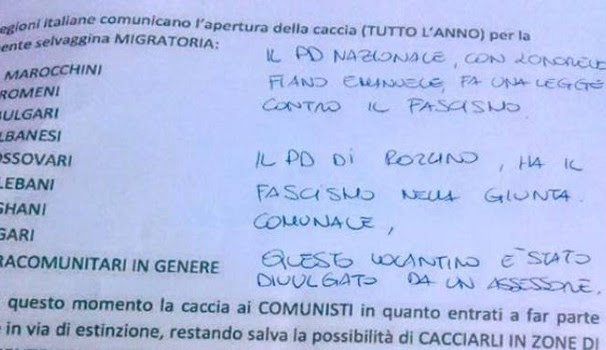 egioni italiane comunicano l'apertura della caccia (TUTTO L'ANNO) per la
ente selvaggina MIGRATORIA:
MAROCCHINI
ROMENI
BULGARI
LBANESI
OSSOVARI
LEBANI
GHANI
GARI
RACOMUNITARI IN GENERE
IL PD NAZIONALE, CON
FIANO EMANUELE, FA UNA LEGGE
CONTRO IL FASCISMO.
IL PD DI ROZZANO, HA IL
FASCISMO NELLA GIUNTA
COMUNALE,
QUESTO VOLANTINO E' STATO
DIVULGATO DA UN ASSESSORE.
questo momento la caccia ai COMUNISTI in quanto entrati a far parte
e in via di estinzione, restando salva la possibilità di CACCIARLI IN ZONE DI